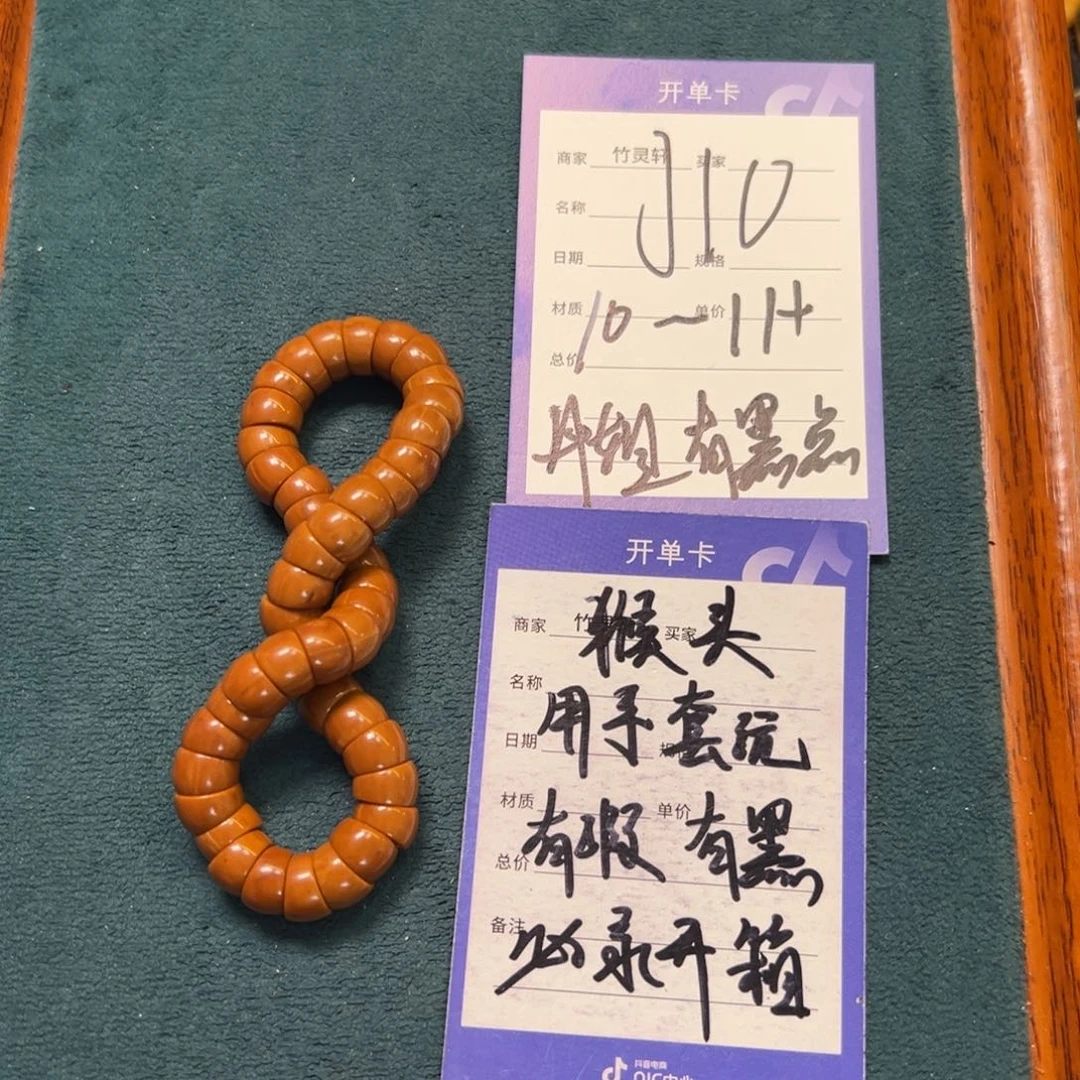 开单卡
商家 竹灵轩 买家
J10
名称
日期 规格
材质 单价
10~11+
总价
有黑点
开单卡
商家 竹 买家
猴头
名称
用手套玩
日期 规
材质 单价
有瑕 有黑
总价
备注
必录开箱
抖音电商